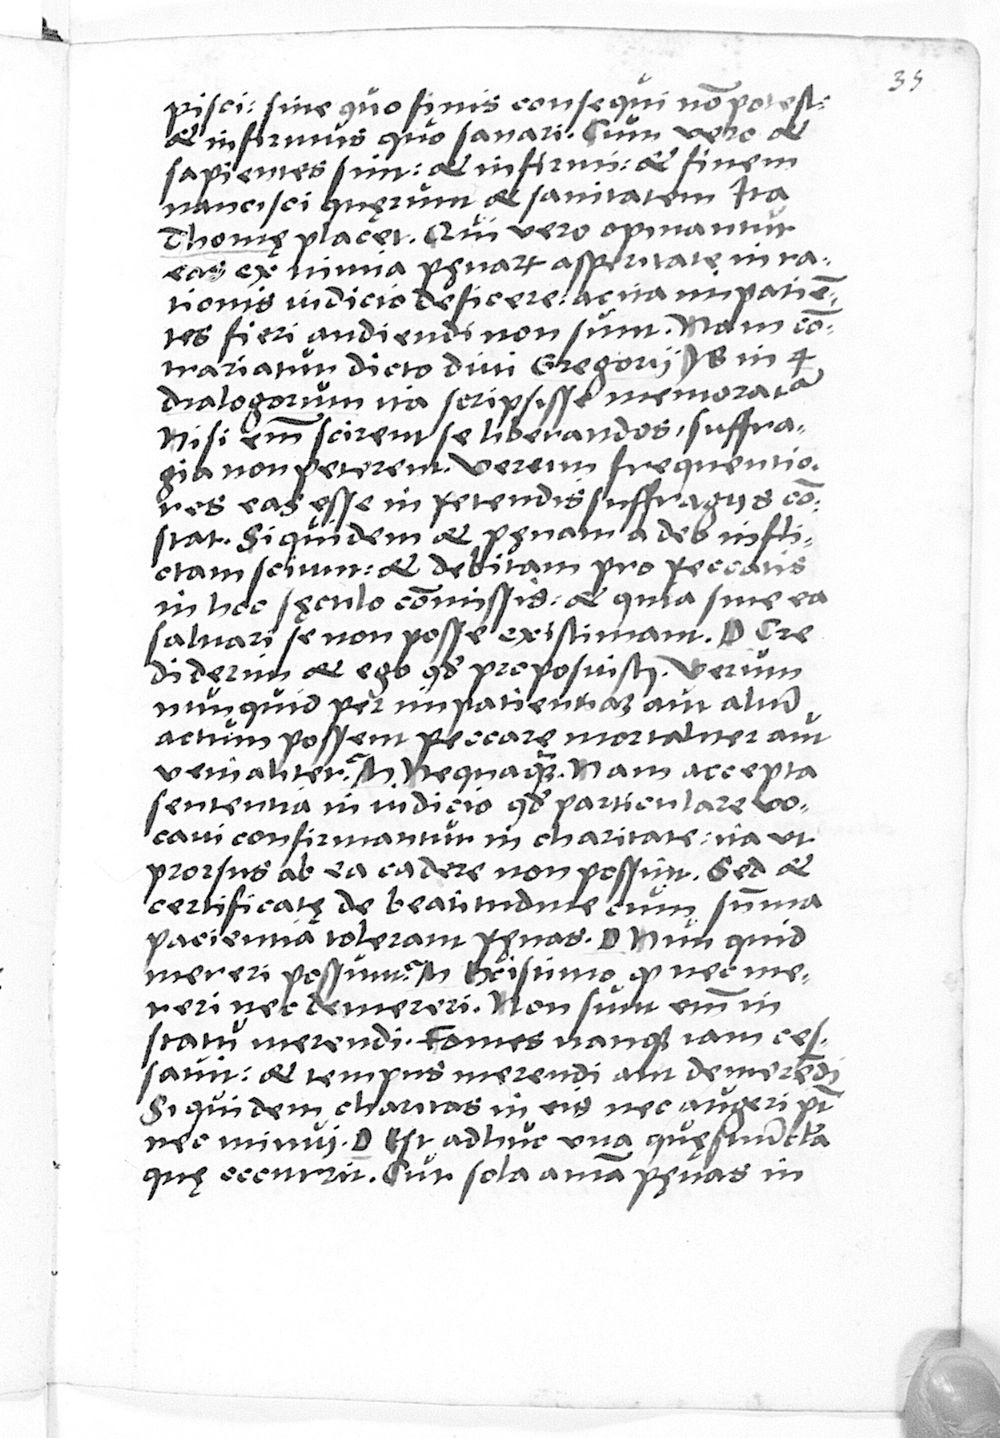 35
pisci: sine quo finis consequi nõ potest:
& infirmus quo sanari. Cum vero &
sapientes sint: & infirmi: & finem
nancisci quęrunt & sanitatem Ita
Thomę placet. Qui vero opinantur
eas ex nimia pęnarꝝ asperitate in ra-
tionis iudicio deficere: ac ita impatiẽ-
tes fieri audiendi non sunt. Nam cõ-
trariatur dicto diui Gregorij Is in 4
dialogorum ita scripsisse memorat̃
Nisi em̃ scirent se liberandos, suffra-
gia non peterent. Verum frequentio-
res eas esse in petendis suffragijs cõ-
stat. Siquidem & pęnam a deo infli-
ctam sciunt: & debitam pro peccatis
in hoc sęculo cõmissis: & quia sine ea
saluari se non posse existimant. D Cre
diderim & ego qđ proposuisti. Verum
nunquid per impatientiaꝫ aut aliũ
actum possent peccare mortaliter aut
venialiter? M Nequaqꝫ. Nam accepta
sententia in iudicio qđ particulare vo-
cani confirmantur in charitate: ita ut
prorsus ab ea cadere non possint. Sed &
certificatę de beatitudine cum sũma
pacientia tolerant pęnas. D Nun quid
mereri possunt? M existimo ꝙ nec me-
reri nec demereri. Non sunt em̃ in
statu merendi. Fomes nanqꝫ iam ces-
sauit: & tempus merendi aut demerẽdi
Siquidem charitas in eis nec augeri pt̃
nec minui. D Est adhuc una quęstiũcla
quę occurrit. Cur sola aniã pęnas in